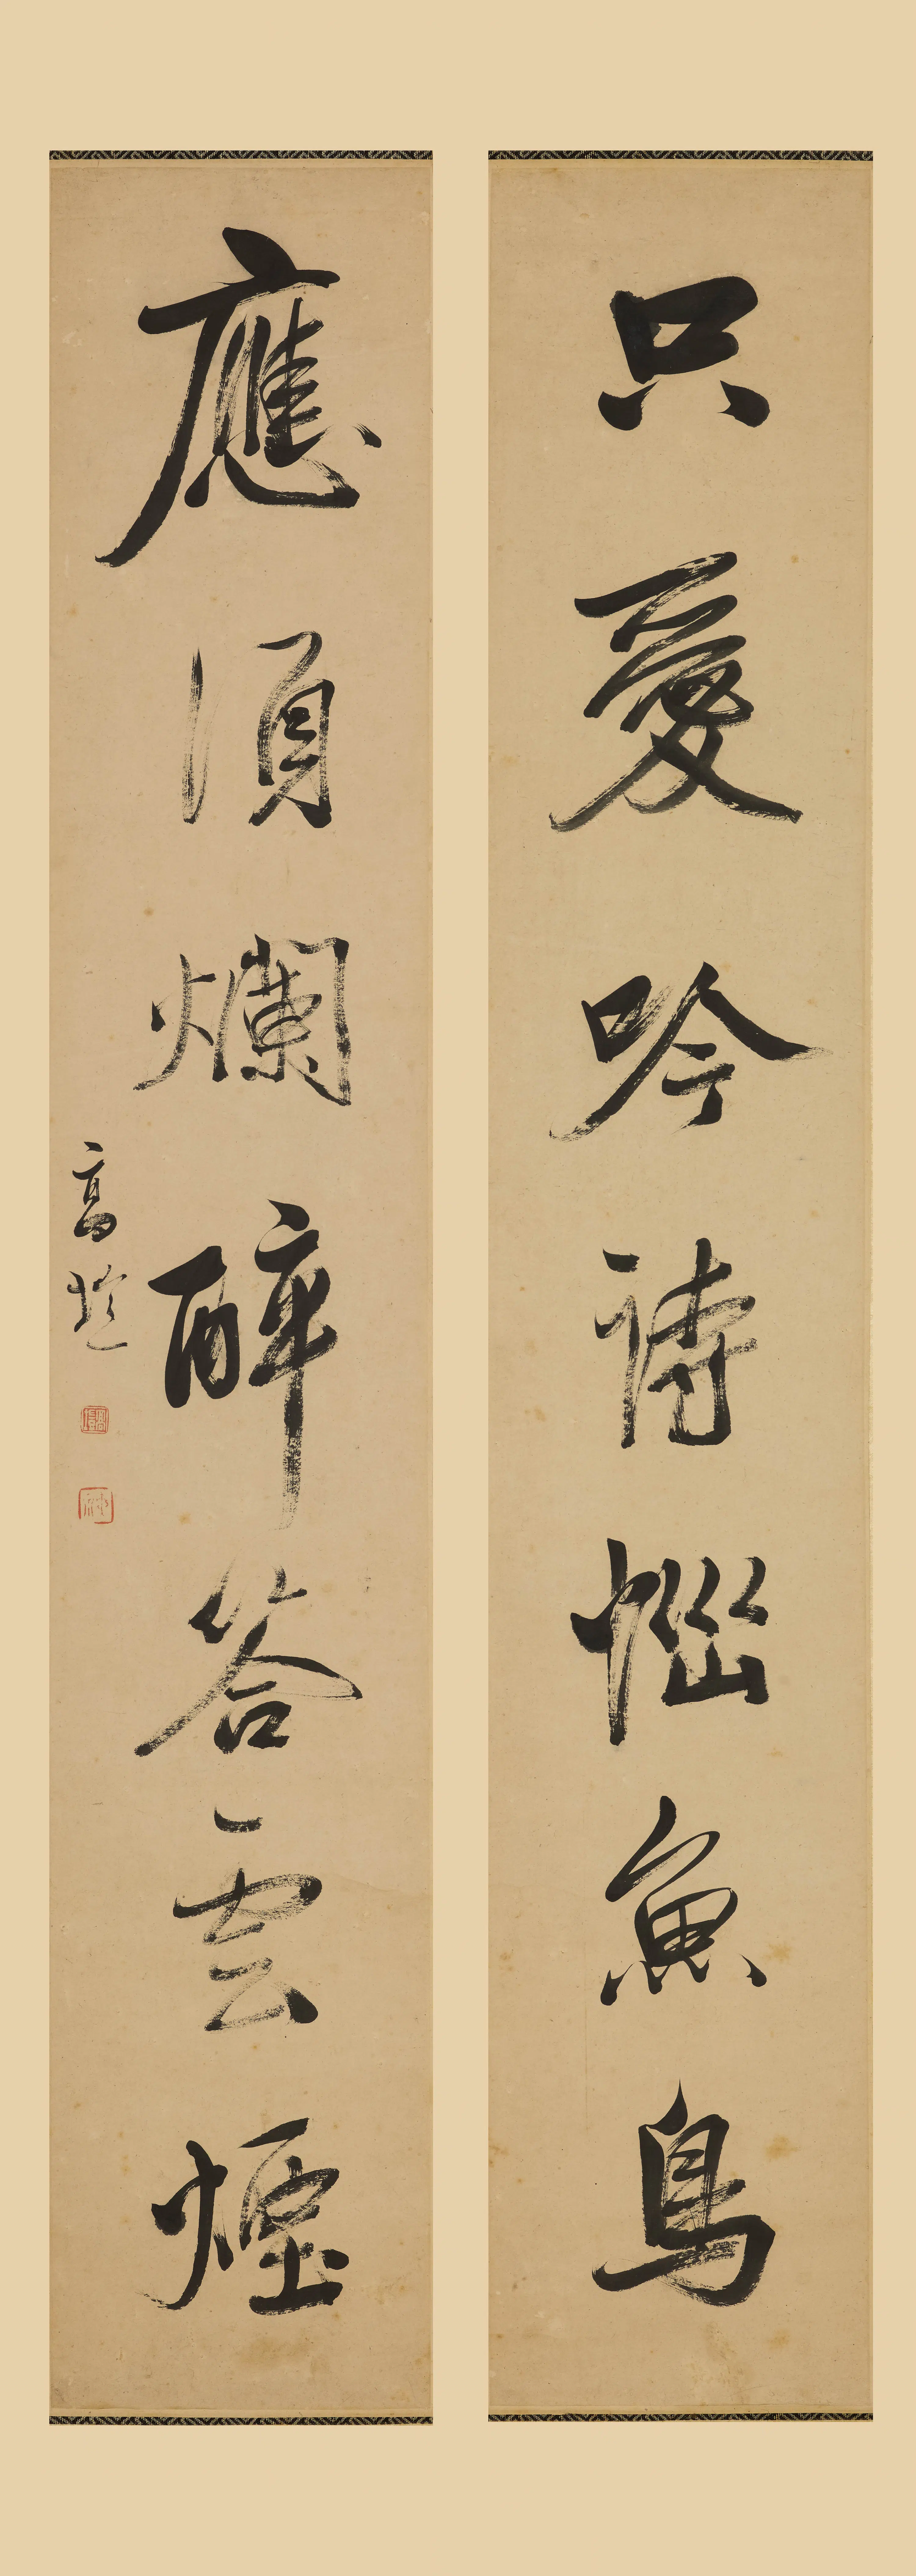 只愛吟詩惱魚鳥
應須爛醉答雲煙
高邕